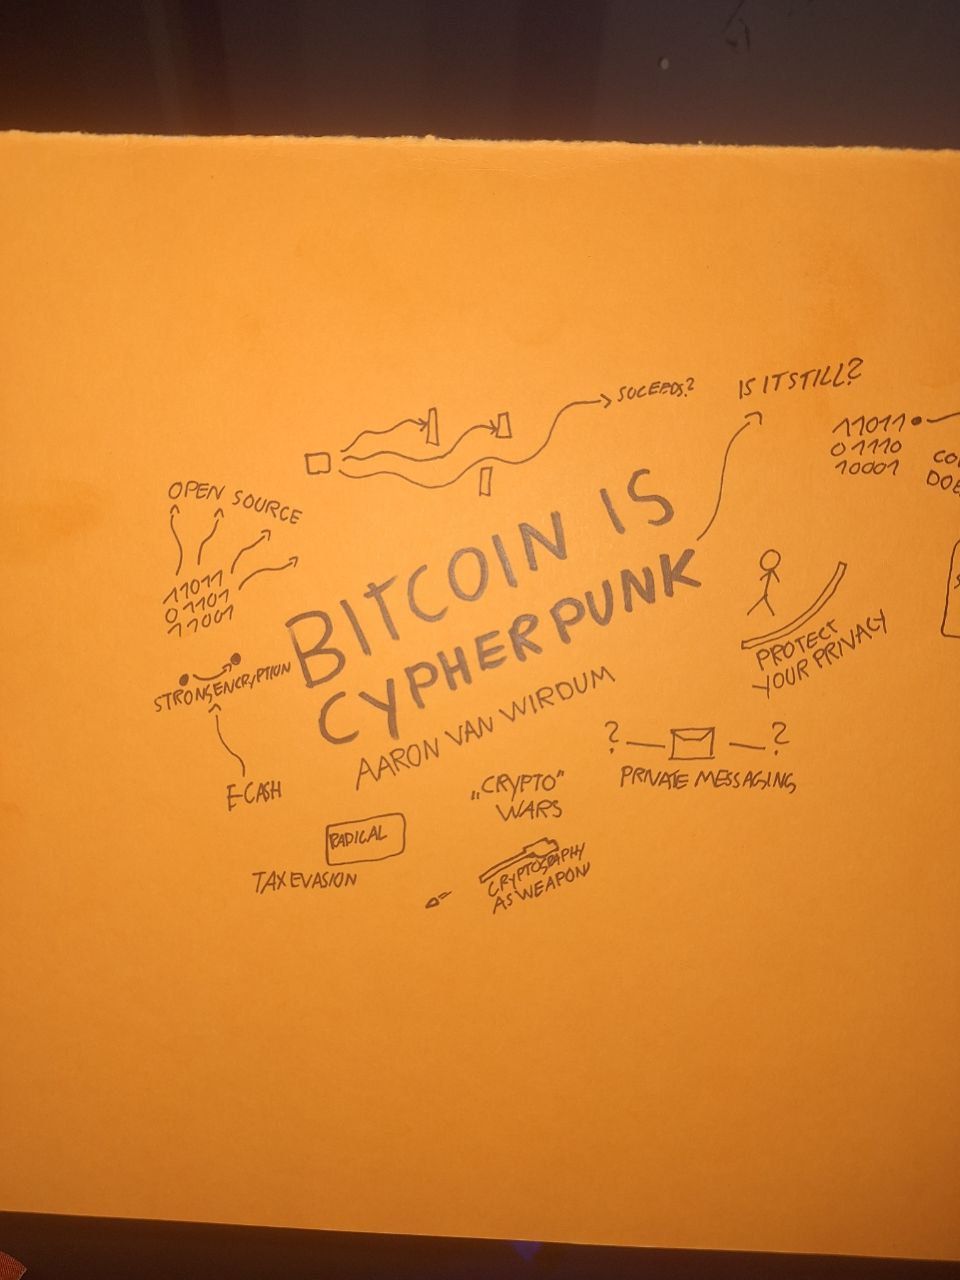 IS IT STILL?
SUCEEDS?
11011
01110
10001
OPEN SOURCE
11011
01101
11001
BITCOIN IS
CYPHERPUNK
AARON VAN WIRDUM
STRONG ENCRYPTION
E-CASH
PROTECT
YOUR PRIVACY
? ?
PRIVATE MESSAGING
„CRYPTO"
WARS
RADICAL
TAX EVASION
CRYPTOGRAPHY
AS WEAPON